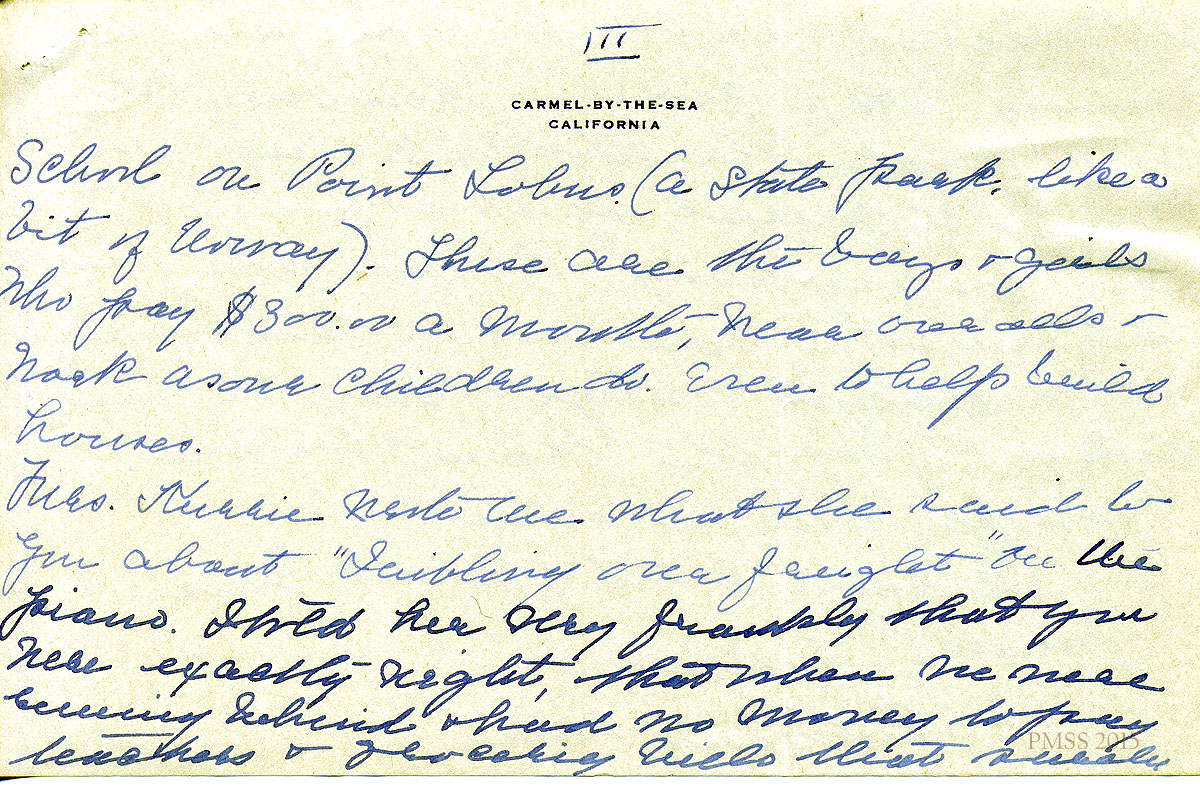 III
CARMEL-BY-THE-SEA
CALIFORNIA
School on Point Lobos. (a State park, like a
bit of Norway). These are the boys & girls
who pay $300.00 a month, wear overalls &
work as our children do. Even to help build
houses.
Mrs. wrote me what she said to
you about " over freight" on the
piano. I told her very frankly that you
were exactly right, that when we were
running behind & had no money to pay
teachers & grocery bills that surely
PMSS 2015